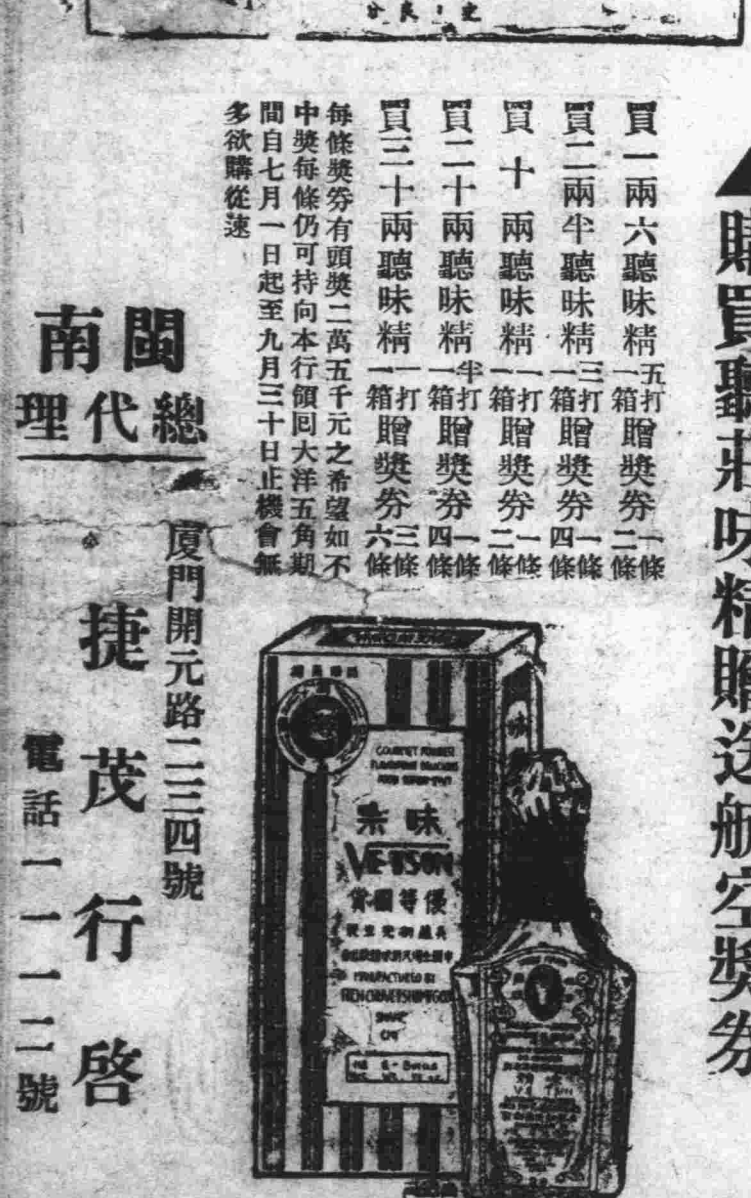 購買聽莊味精贈送航空獎劵
買一兩六聽味精五打一箱贈獎劵一條二條
買二兩半聽味精三打一箱贈獎劵一條四條
買十兩聽味精一打一箱贈獎劵一條二條
買二十兩聽味精半打一箱贈獎劵一條四條
買三十兩聽味精一打一箱贈獎劵三條六條
每條獎劵有頭獎二萬五千元之希望如不
中獎每條仍可持向本行領囘大洋五角期
間自七月一日起至九月三十日止機會無
多欲購從速
閩南
總代理
厦門開元路二三四號
捷茂行啓
電話一一一二號
GOURMET POWDER
味
VE-TSON
優等國貨
MANUFACTURED BY